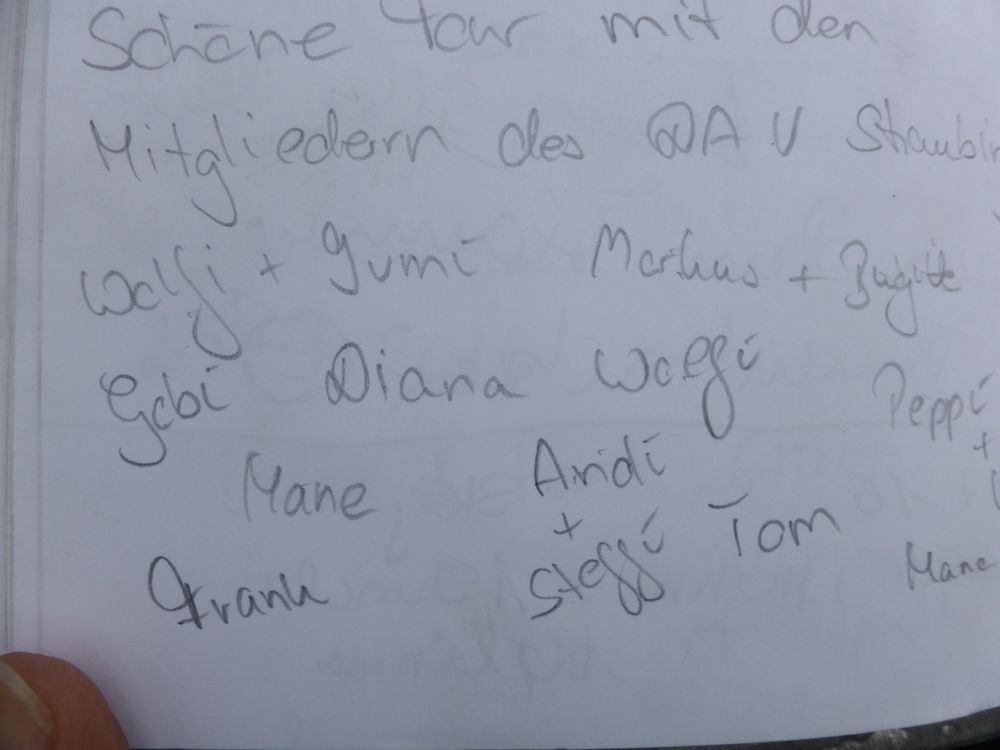 Schöne Tour mit den
Mitgliedern des DAV Straubin
Wolfi + Gumi Markus + Brigitte
Gabi Diana Wolfi Peppi
+
Mane Andi
+
Frank Steffi Tom Mane